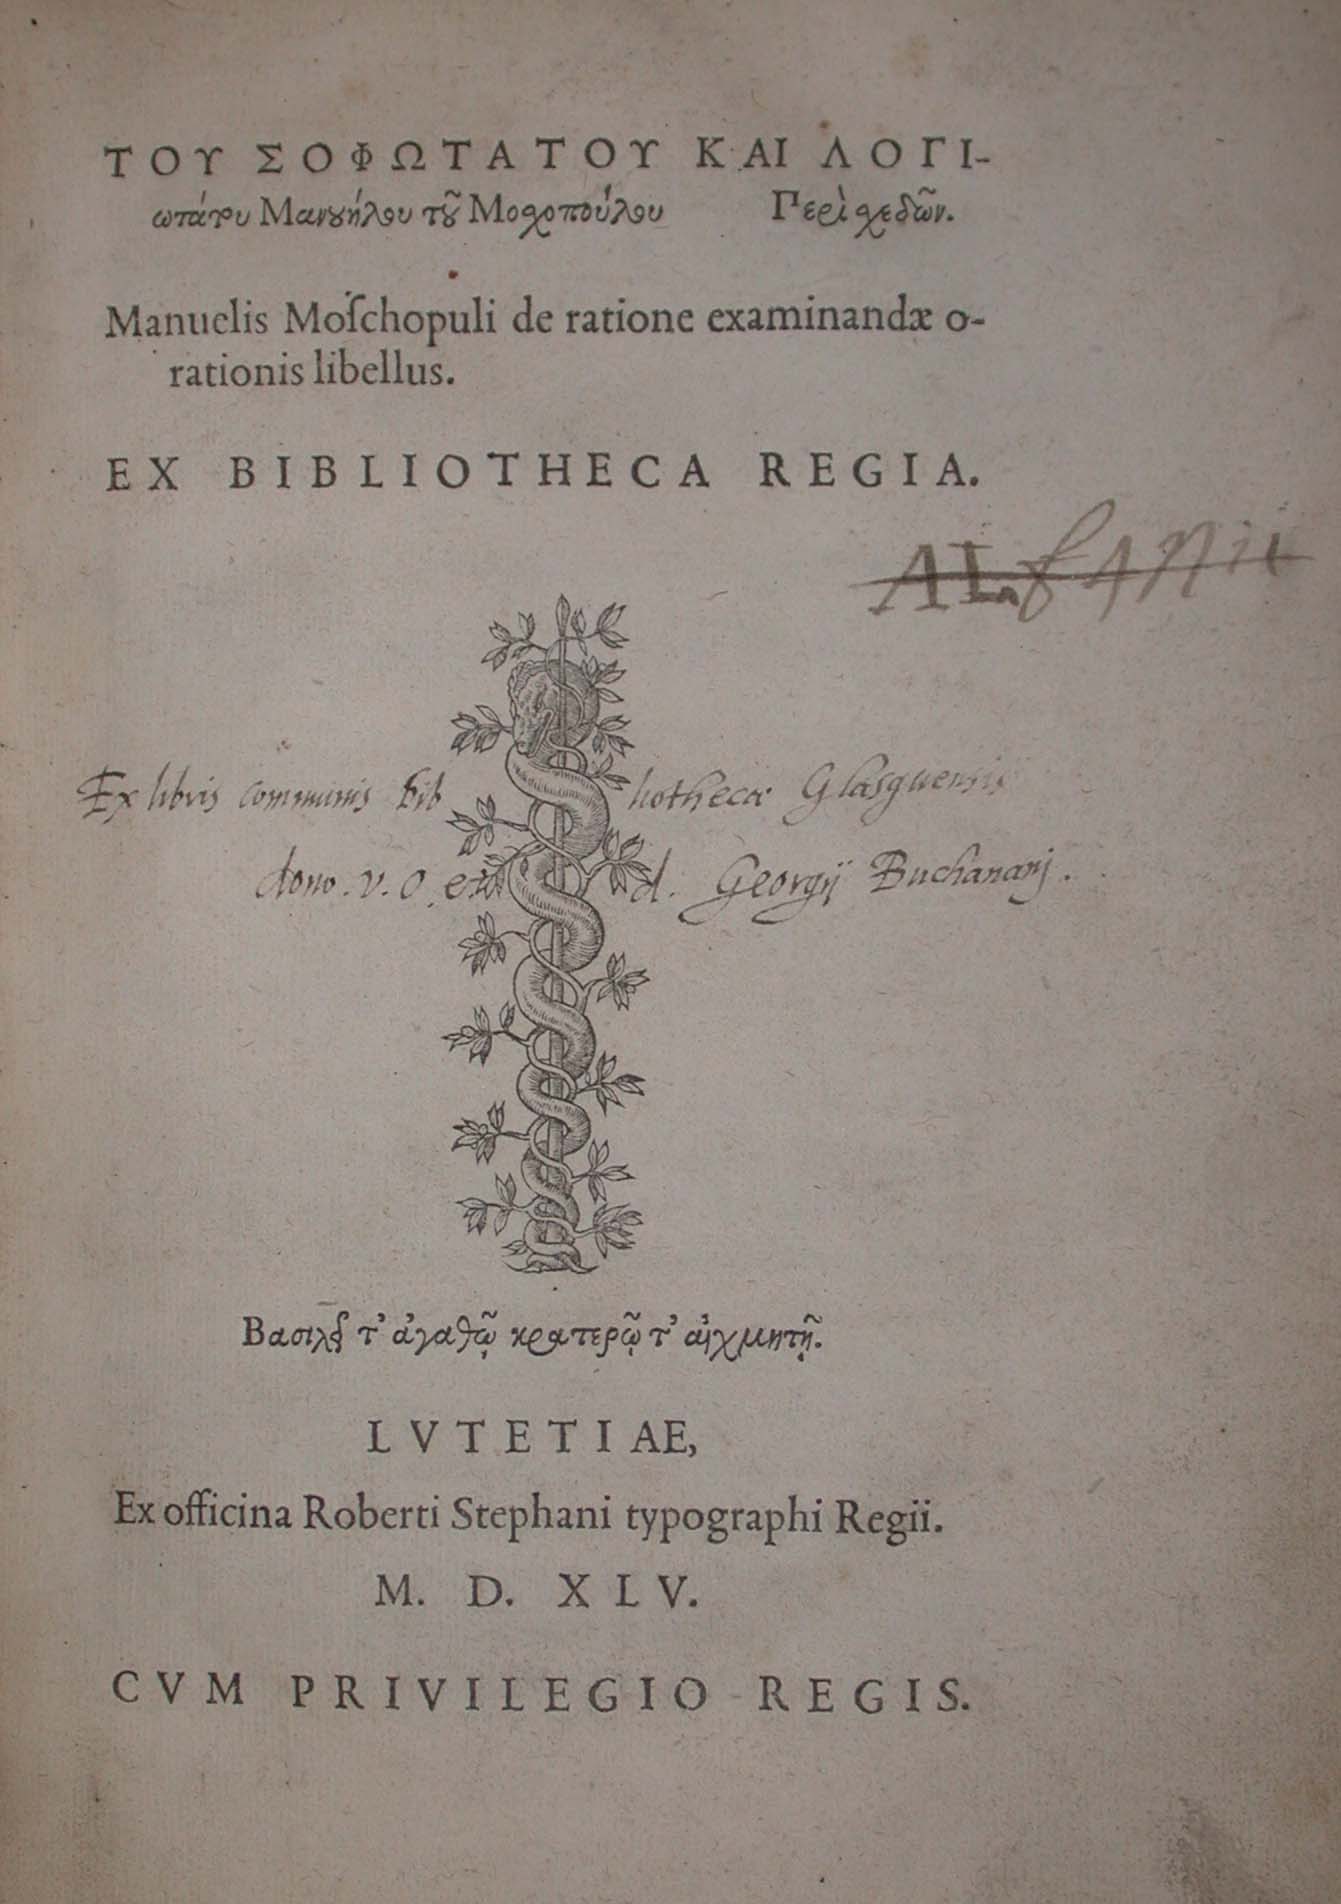 ΤΟΥ ΣΟΦΩΤΑΤΟΥ ΚΑΙ ΛΟΓΙ-
ωτάτου Μανουήλου τοῦ Μοσχοπούλου Περὶ σχεδῶν.
Manuelis Moſchopuli de ratione examinandæ o-
rationis libellus.
EX BIBLIOTHECA REGIA.
Ex libris communis bibliothecæ Glasguensis
dono . v. O. et d. Georgij Buchananj.
Βασιλεῖ τ' ἀγαθῷ κρατερῷ τ' αἰχμητῇ.
LVTETIAE,
Ex officina Roberti Stephani typographi Regii.
M. D. XLV.
CVM PRIVILEGIO REGIS.